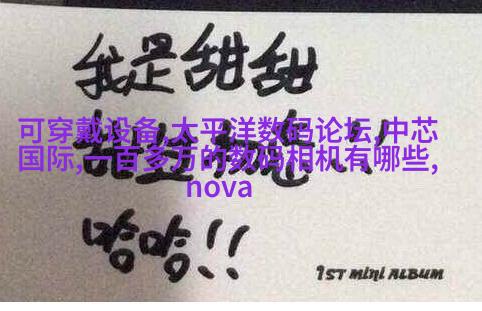 我是甜甜
可穿戴设备,太平洋数码论坛,中芯
国际,一百多万的数码相机有哪些,
nova
哈哈!!
1ST MINI ALBUM